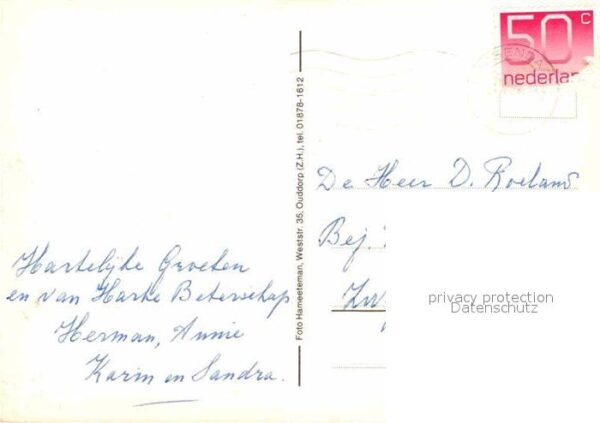 50 c
nederla
Foto Hameeteman, Weststr. 35, Ouddorp (Z.H.), tel. 01878-1612
De Heer D. Roelans
Bej.
Zw
privacy protection
Datenschutz
Hartelijke Groeten
en van Harte Beterschap
Herman, Annie
Karin en Sandra.